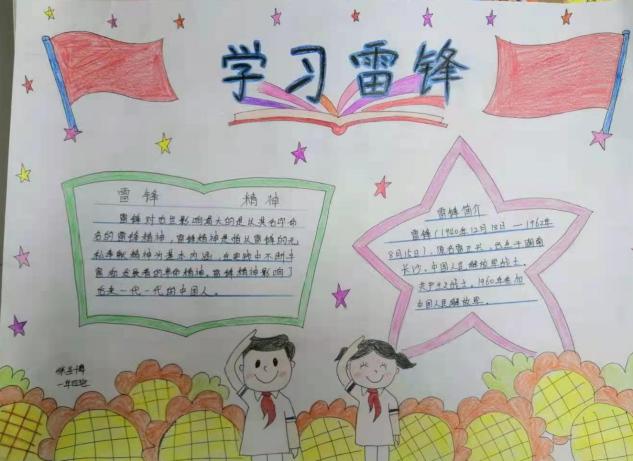 学习雷锋
雷锋 精神
雷锋对后世影响最大的是从其名字命
名的雷锋精神，雷锋精神是指从雷锋的无
私奉献精神为基本内涵，在实践中不断丰
富和发展着的革命精神，雷锋精神影响了
后来一代一代的中国人。
雷锋简介
雷锋（1940年12月18日—1962年
8月15日），原名雷正兴，出生于湖南
长沙，中国人民解放军战士，
共产主义战士，1960年参加
中国人民解放军。